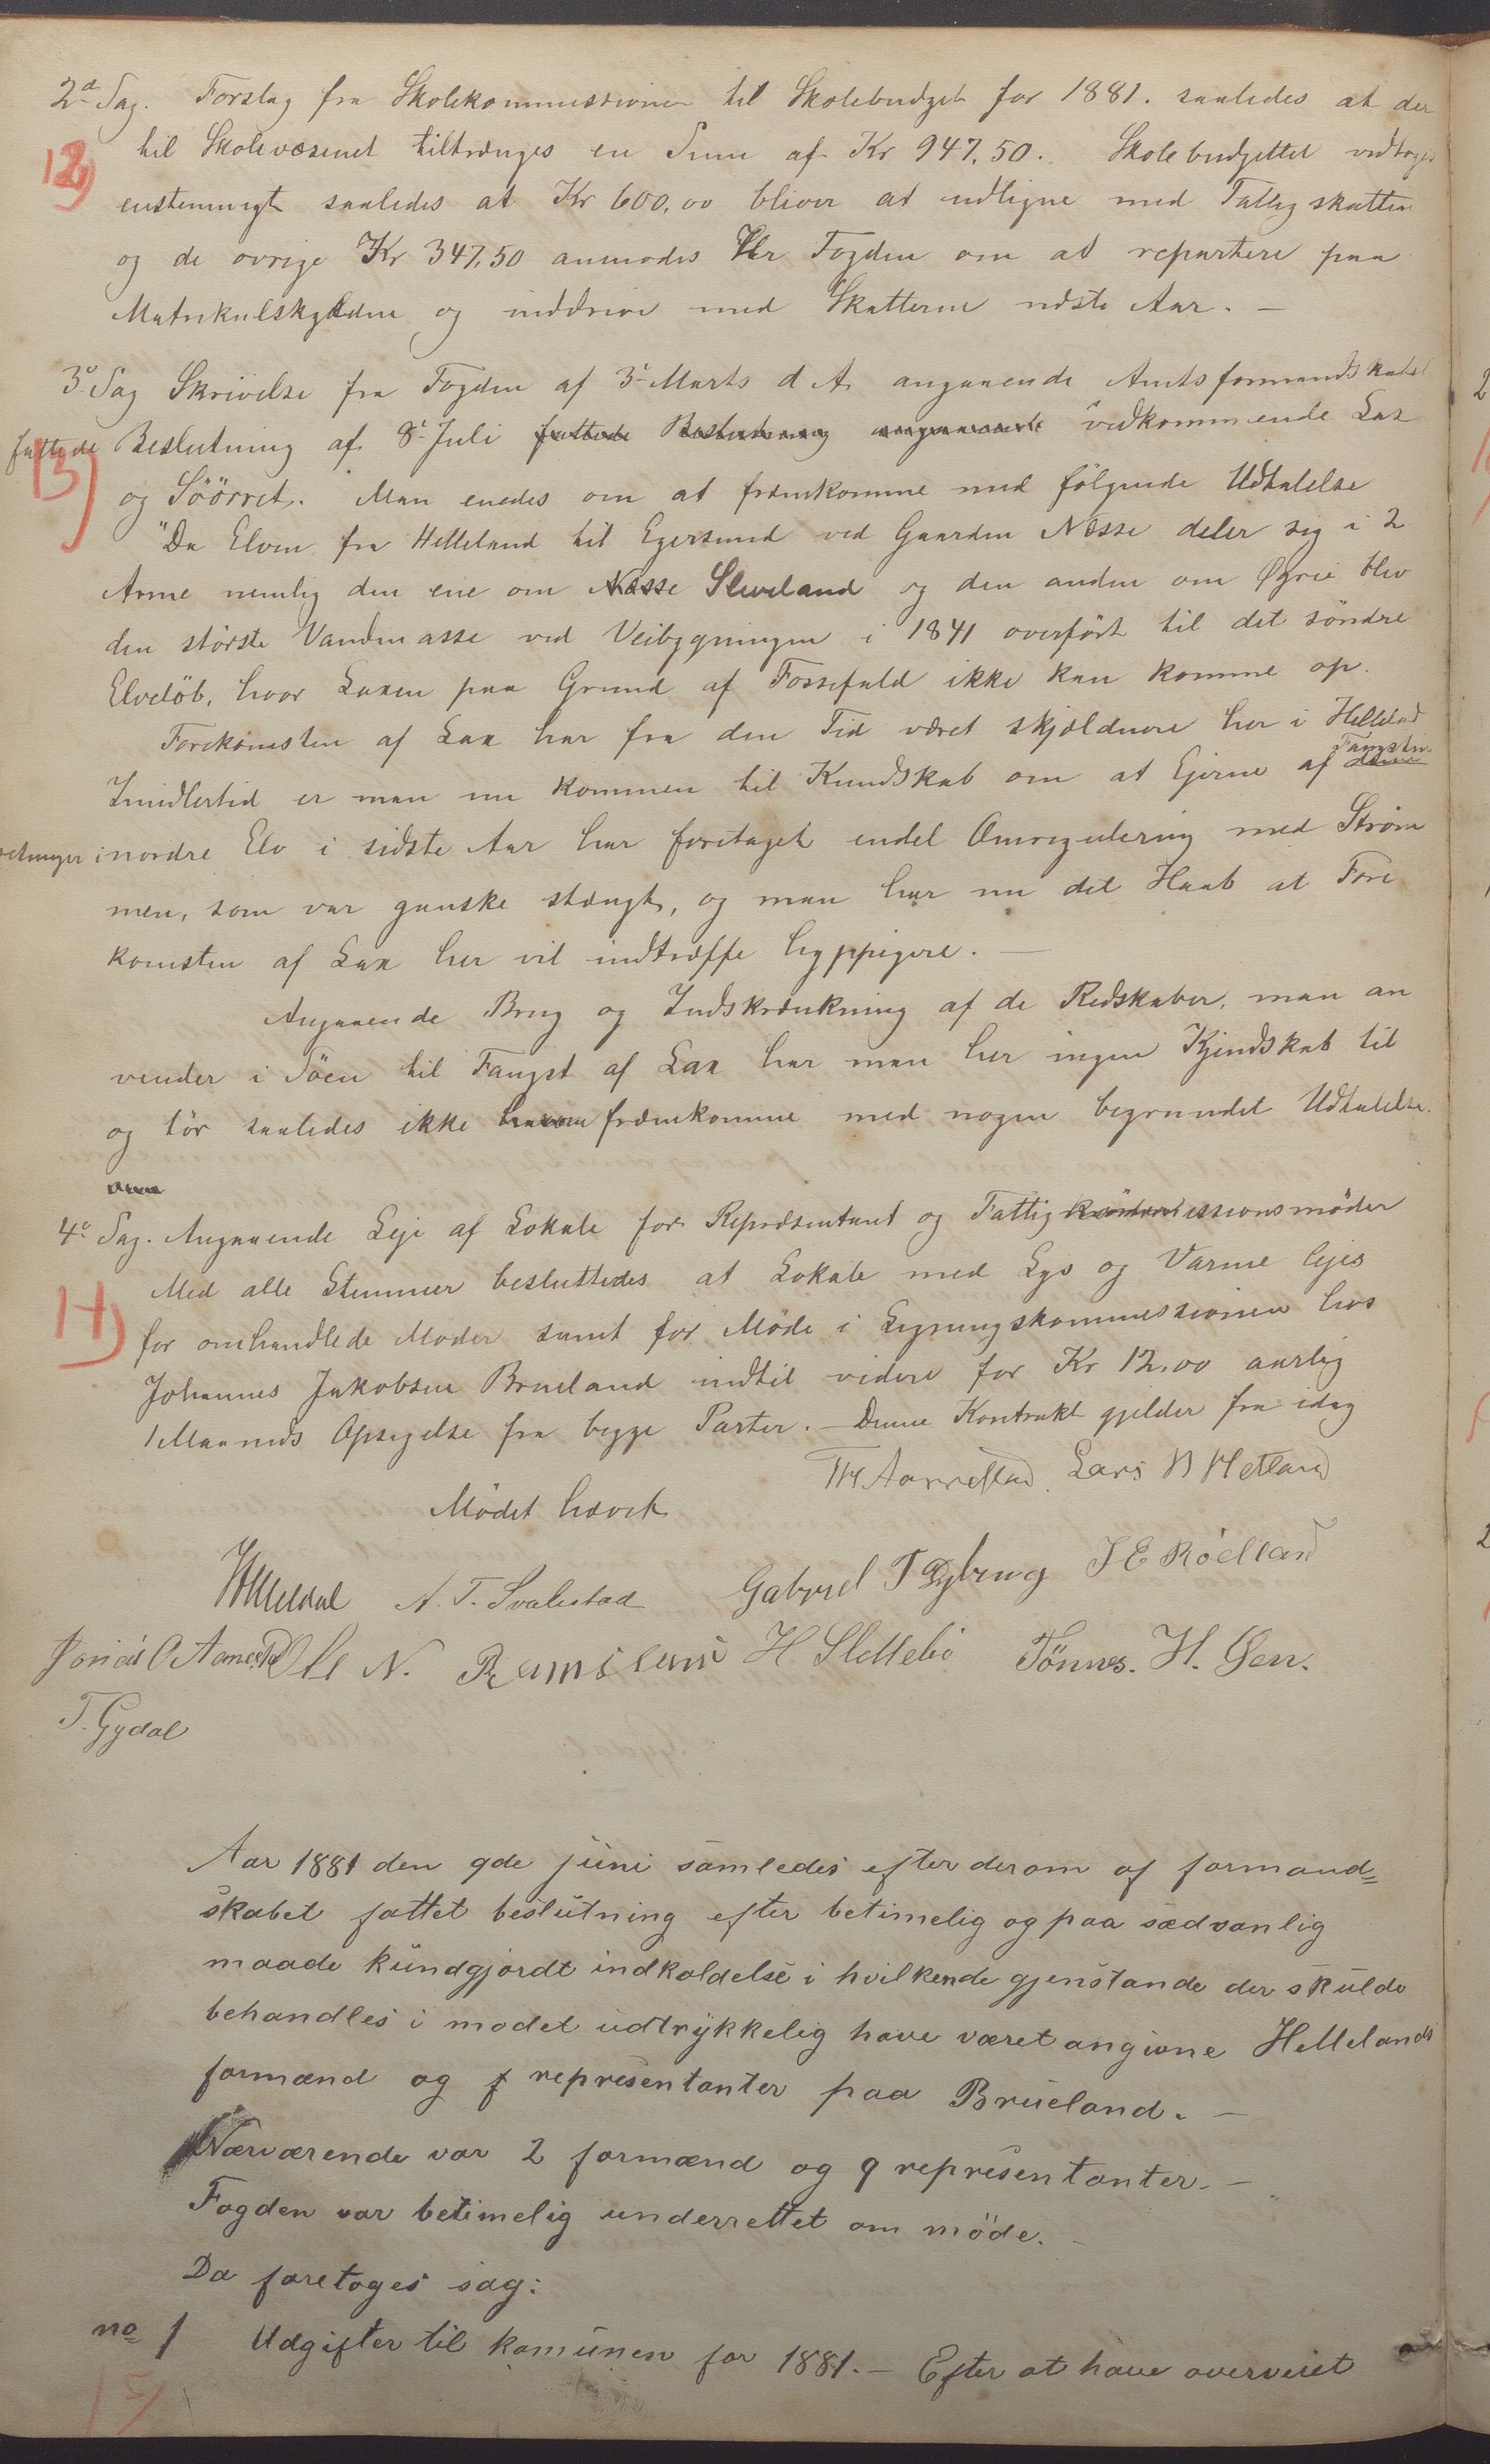 2d Sag. Forslag fra Skolekommissionen til Skolebudget for 1881. saaledes at der
12)
til Skolevæsenet tiltrænges en Sum af Kr 947,50. Skolebudgettet vedtoges
enstemmigt saaledes at Kr 600,00 bliver at udligne med Fattigskatten
og de øvrige Kr 347,50 anmodes Hr Fogden om at repartere paa
Matrikulskylden og inddrive med Skatterne næste Aar. —
3e Sag Skrivelse fra Fogden af 3e Marts d A angaaende Amtsformandskabet
fattede Beslutning af 8e Juli fattede Beslutning angaaende vedkommende Lax
13)
og Søörret. Man enedes om at fræmkomme med følgende Udtalelse
"Da Elven fra Helleland til Egersund ved Gaarden Næsse deler sig i 2
Arme nemlig den ene om Næsse Sleveland og den anden om Øgreie blev
den störste Vandmasse ved Veibygningen i 1841 overfört til det söndre
Elvelöb, hvor Laxen paa Grund af Fossefald ikke kan komme op.
Forekomsten af Lax har fra den Tid været skjældnere her i Helleland
Imidlertid er man nu kommen til Kundskab om at Ejerne af denne Fangstin
retninger i nordre Elv i sidste Aar har foretaget endel Omregulering med Strøm
men, som var ganske stængt, og man har nu det Haab at Fore
komsten af Lax her vil indtræffe hyppigere. —
Angaaende Brug og Indskrænkning af de Redskaber, man an
vender i Söen til Fangst af Lax har man her ingen Kjendskab til
og tör saaledes ikke fræmkomme med nogen begrundet Udtalelse.
4e Sag. Angaaende Leje af Lokale for Repræsentant og Fattigkommissionsmöder
Med alle Stemmer besluttedes at Lokale med Lys og Varme lejes
14)
for omhandlede Møder samt for Möde i Ligningskommissionen hos
Johannes Jakobsen Brueland indtil videre for Kr 12,00 aarlig
1 Maaneds Opsigelse fra begge Parter. — Denne Kontrakt gjelder fra idag
Mödet hævet
TH Aarrestad. Lars N Hetland
Helleldal N. T. Svalestad Gabriel T Eybrug J E Röelland
Jonas O Aamod Ole N. Ramsland H Slettebö Tönnes. H. Øen.
T. Gydal
Aar 1881 den 9de juni samledes efter derom af formand=
skabet fattet beslutning efter betimelig og paa sædvanlig
maade kundgjordt indkaldelse i hvilkende gjenstande der skulde
behandles i modet udtrykkelig have været angivne Hellelands
formænd og f representanter paa Brueland. —
Nærværende var 2 formænd og 9 representanter. —
Fogden var betimelig underrettet om möde. —
Da foretoges sag:
no 1 Udgifter til komunen for 1881. — Efter at have overveiet
15)